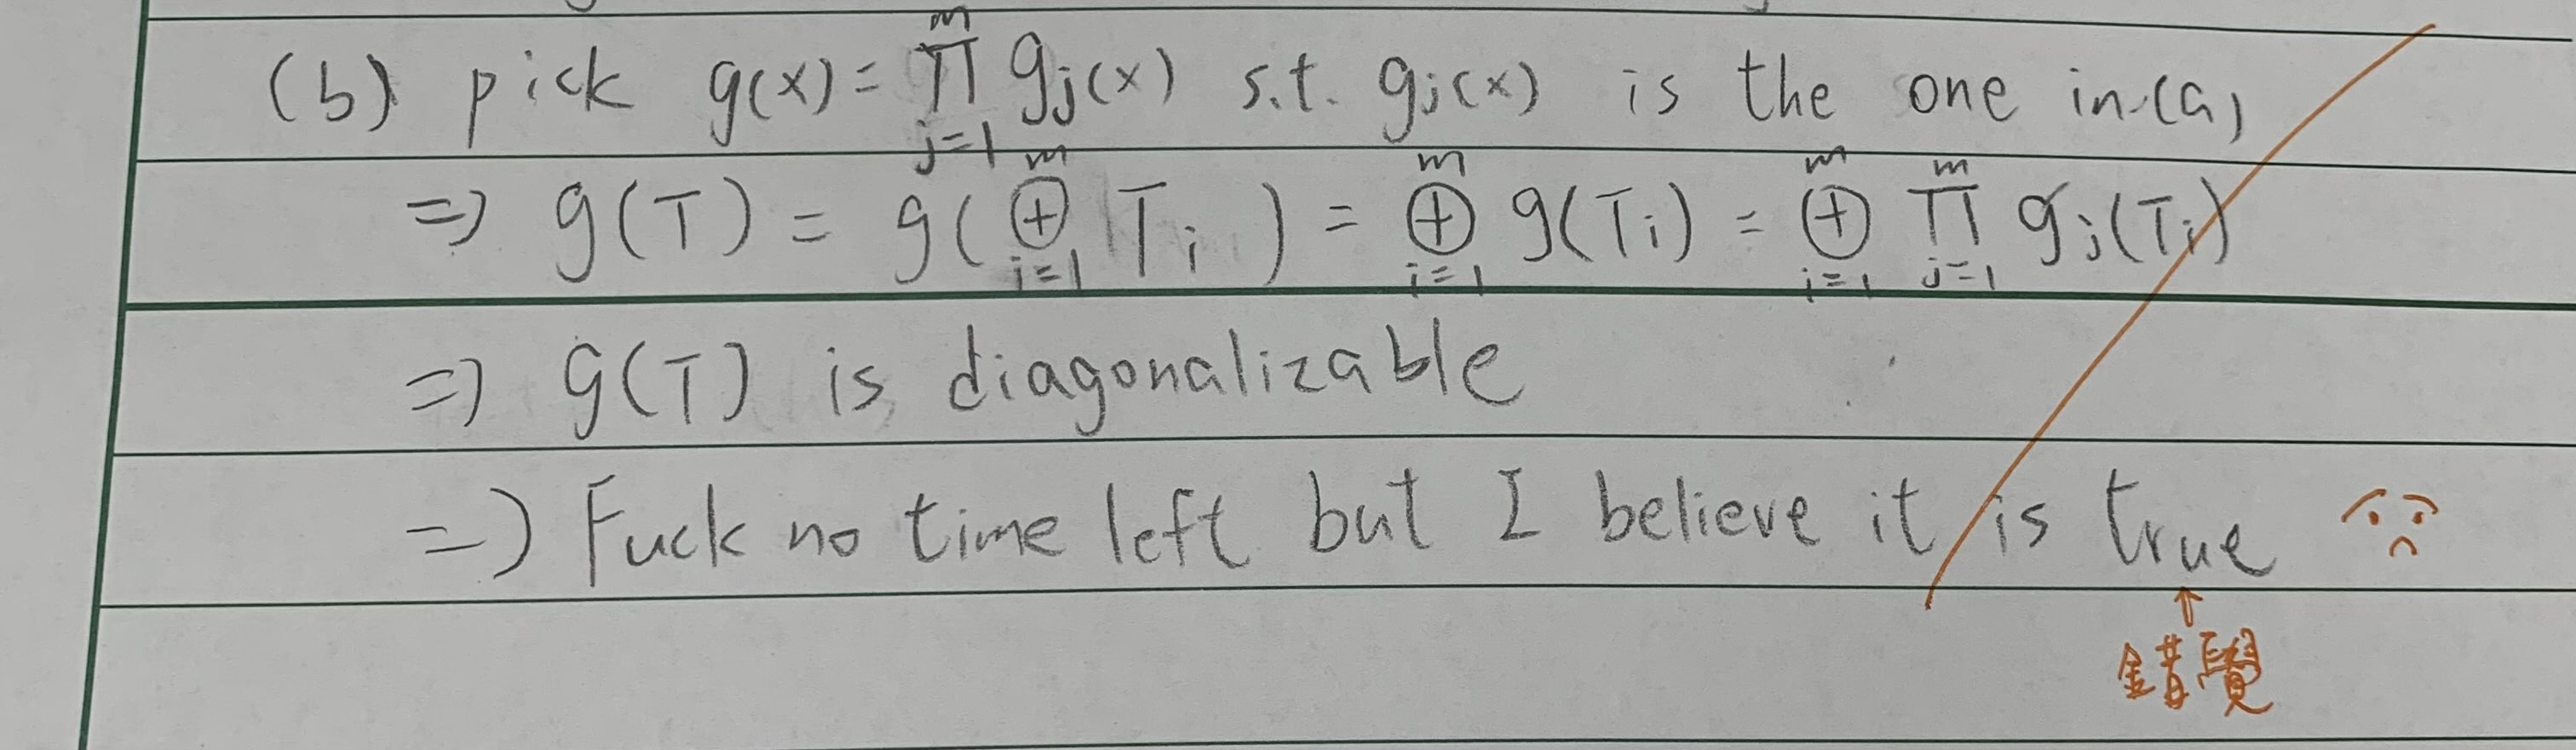 (b) pick g(x) = ∏_{j=1}^{m} g_j(x) s.t. g_j(x) is the one in (a)
⇒ g(T) = g(⊕_{i=1}^{m} T_i) = ⊕_{i=1}^{m} g(T_i) = ⊕_{i=1}^{m} ∏_{j=1}^{m} g_j(T_i)
⇒ g(T) is diagonalizable
⇒ Fuck no time left but I believe it is true
↑
錯覺